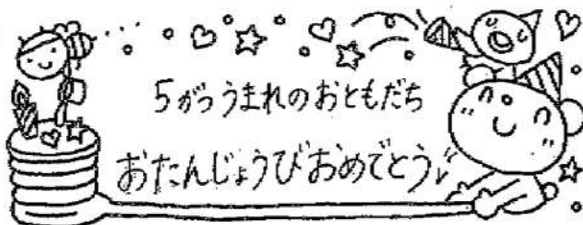 5がつうまれのおともだち
おたんじょうびおめでとう